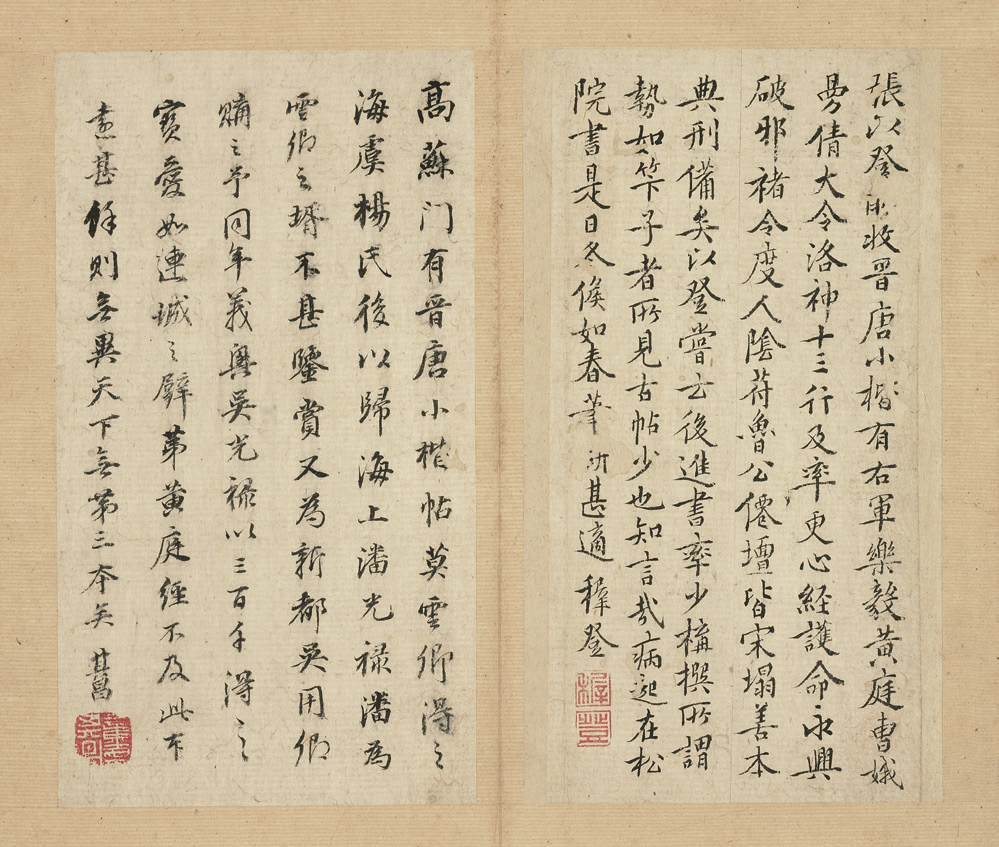 張以登所收晋唐小楷有右軍樂毅黃庭曹娥
曼倩大令洛神十三行及率更心経護命永興
破邪褚令度人陰苻魯公僊壇皆宋塌善本
典刑備矣以登嘗云後進書率少楇撰所謂
勢如竿子者所見古帖少也知言哉病起在松
院書是日冬候如春筆研甚適穉登
高蘇门有晋唐小楷帖莫雲卿得之
海虞楊氏後以歸海上潘光禄潘為
雲卿之壻不甚鑒賞又為新都吳用卿
購之予同年義興吳光禄以三百千得之
寳愛如連城之璧第黃庭經不及此本
甚餘則無異天下無第三本矣 其昌